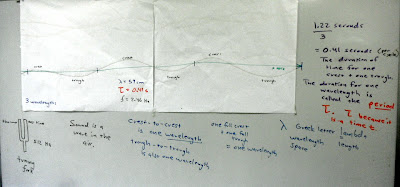 crest
crest
trough
trough
trough
3 wavelengths
λ = 59 cm
τ = 0.41 s
f = 2.46 Hz
1.22 seconds
3
= 0.41 seconds
The duration of
time for one
crest + one trough.
The duration for one
wavelength is
called the period
τ because it
is a time t
tuning
fork
512 Hz
Sound is a
wave in the
air.
Crest-to-crest
is one wavelength
trough-to-trough
is also one wavelength
one full crest
+ one full
trough
= one wavelength
λ Greek letter lambda
space = length